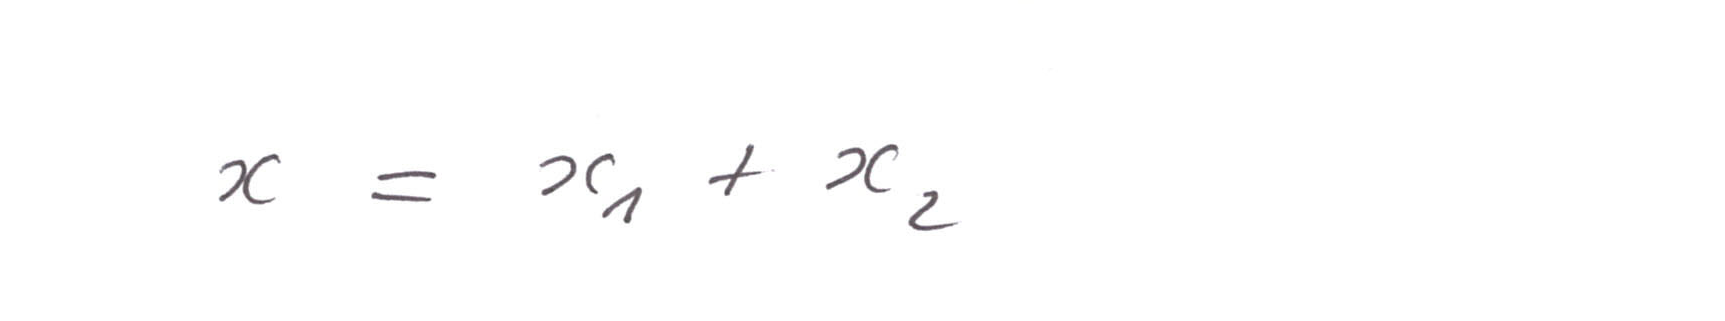 x = x₁ + x₂